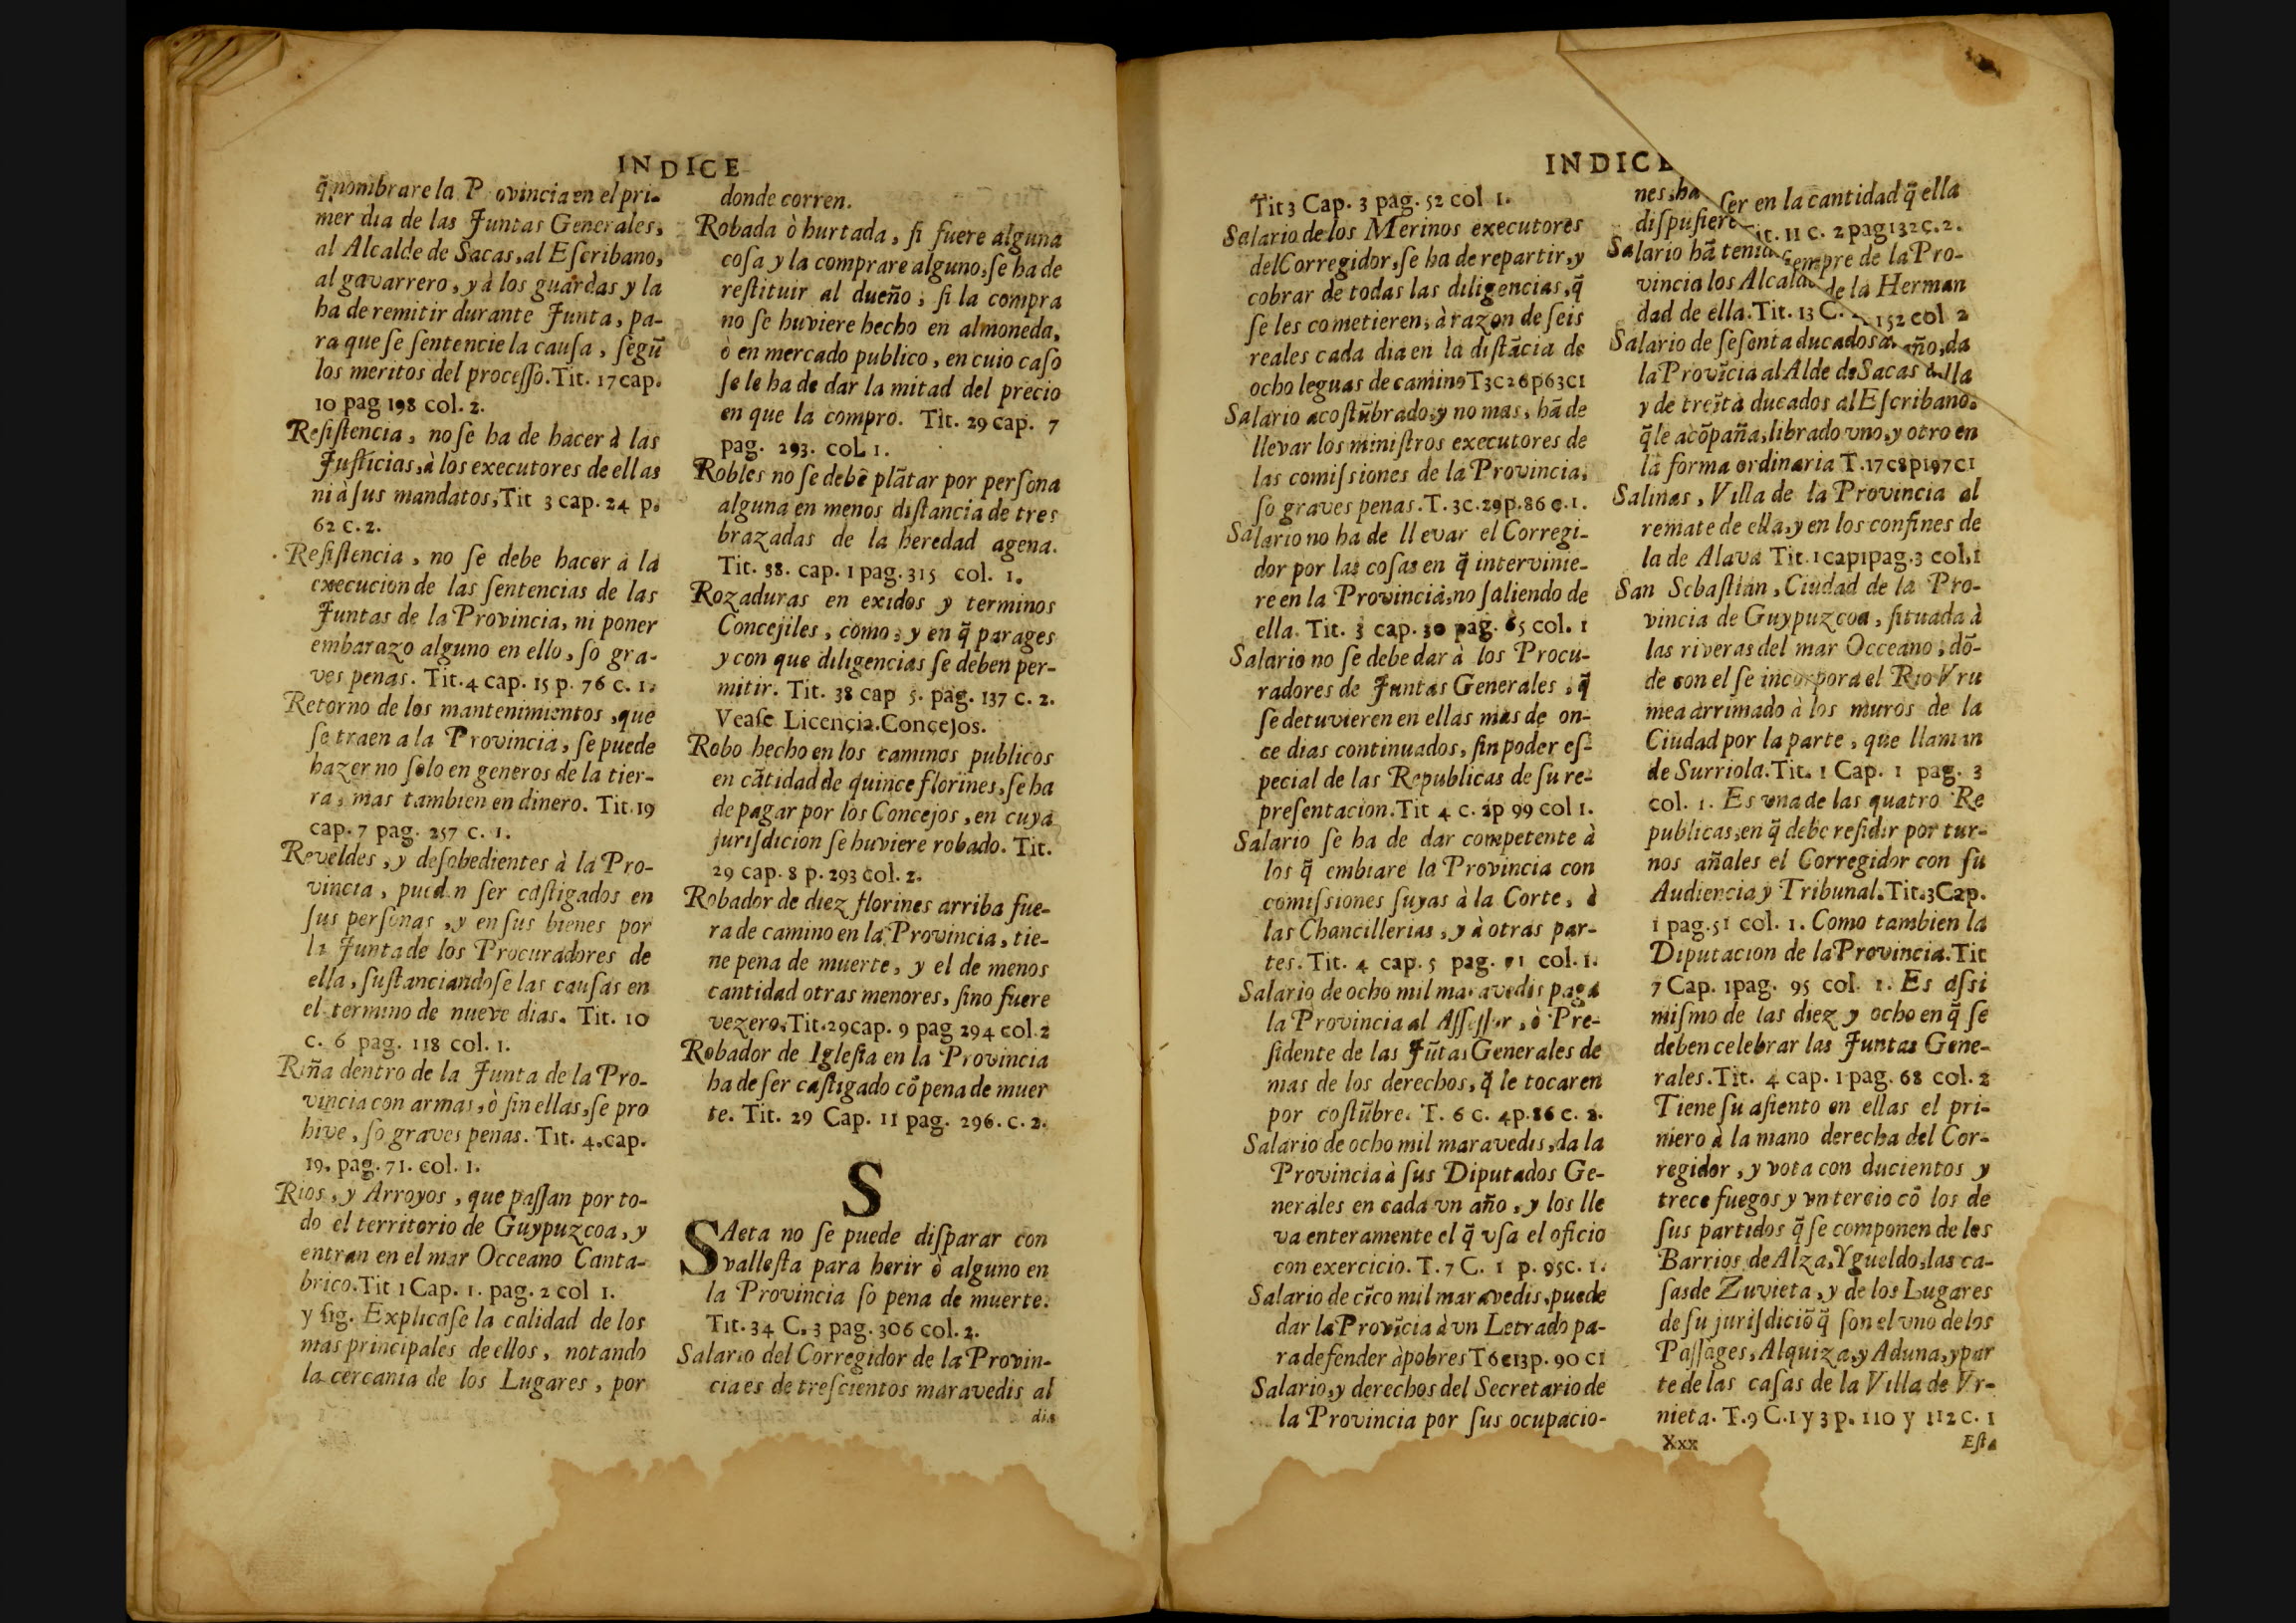 INDICE
q̃ nombrare la P ovincia en el pri-
mer dia de las Juntas Generales,
al Alcalde de Sacas, al Eſcribano,
al gavarrero, y à los guardas y la
ha de remitir durante Junta, pa-
ra que ſe ſentencie la cauſa, ſegũ
los meritos del proceſſo. Tit. 17 cap.
10 pag 198 col. 2.
Reſiſtencia, no ſe ha de hacer à las
Juſticias, à los executores de ellas
ni à ſus mandatos, Tit 3 cap. 24 p.
62 c. 2.
Reſiſtencia, no ſe debe hacer à la
execucion de las ſentencias de las
Juntas de la Provincia, ni poner
embarazo alguno en ello, ſo gra-
ves penas. Tit. 4 cap. 15 p. 76 c. 1.
Retorno de los mantenimientos, que
ſe traen a la Provincia, ſe puede
hazer no ſolo en generos de la tier-
ra, mas tambien en dinero. Tit. 19
cap. 7 pag. 257 c. 1.
Reveldes, y deſobedientes à la Pro-
vincia, pued.n ſer caſtigados en
ſus perſonas, y en ſus bienes por
la Junta de los Procuradores de
ella, ſuſtanciandoſe las cauſas en
el termino de nueve dias. Tit. 10
c. 6 pag. 118 col. 1.
Riña dentro de la Junta de la Pro-
vincia con armas, ò ſin ellas, ſe pro
hive, ſo graves penas. Tit. 4. cap.
19. pag. 71. col. 1.
Rios, y Arroyos, que paſſan por to-
do el territorio de Guypuzcoa, y
entran en el mar Occeano Canta-
brico. Tit 1 Cap. 1. pag. 2 col 1.
y ſig. Explicaſe la calidad de los
mas principales de ellos, notando
la cercania de los Lugares, por
donde corren.
Robada ò hurtada, ſi fuere alguna
coſa y la comprare alguno, ſe ha de
reſtituir al dueño, ſi la compra
no ſe huviere hecho en almoneda,
ò en mercado publico, en cuio caſo
ſe le ha de dar la mitad del precio
en que la compro. Tit. 29 cap. 7
pag. 293. col 1.
Robles no ſe debẽ plãtar por perſona
alguna en menos diſtancia de tres
brazadas de la heredad agena.
Tit. 38. cap. 1 pag. 315 col. 1.
Rozaduras en exidos y terminos
Concejiles, como, y en q̃ parages
y con que diligencias ſe deben per-
mitir. Tit. 38 cap 5. pag. 137 c. 2.
Veaſe Licencia. Concejos.
Robo hecho en los caminos publicos
en cãtidad de quince florines, ſe ha
de pagar por los Concejos, en cuya
juriſdicion ſe huviere robado. Tit.
29 cap. 8 p. 293 col. 2.
Robador de diez florines arriba fue-
ra de camino en la Provincia, tie-
ne pena de muerte, y el de menos
cantidad otras menores, ſino fuere
vezero. Tit. 29 cap. 9 pag 294 col. 2
Robador de Igleſia en la Provincia
ha de ſer caſtigado cõ pena de muer
te. Tit. 29 Cap. 11 pag. 296. c. 2.
S
SAeta no ſe puede diſparar con
valleſta para herir ò alguno en
la Provincia ſo pena de muerte.
Tit. 34 C. 3 pag. 306 col. 2.
Salario del Corregidor de la Provin-
cia es de treſcientos maravedis al
dia
INDICE
Tit 3 Cap. 3 pag. 52 col 1.
Salario de los Merinos executores
del Corregidor, ſe ha de repartir, y
cobrar de todas las diligencias, q̃
ſe les cometieren, à razon de ſeis
reales cada dia en la diſtãcia de
ocho leguas de camino T3c26p63c1
Salario acoſtũbrado, y no mas, hã de
llevar los miniſtros executores de
las comiſsiones de la Provincia,
ſo graves penas. T. 3c. 29p. 86 c. 1.
Salario no ha de llevar el Corregi-
dor por las coſas en q̃ intervinie-
re en la Provincia, no ſaliendo de
ella. Tit. 3 cap. 30 pag. 65 col. 1
Salario no ſe debe dar à los Procu-
radores de Juntas Generales, q̃
ſe detuvieren en ellas mas de on-
ce dias continuados, ſin poder eſ-
pecial de las Republicas de ſu re-
preſentacion. Tit 4 c. 2p 99 col 1.
Salario ſe ha de dar competente à
los q̃ embiare la Provincia con
comiſsiones ſuyas à la Corte, à
las Chancillerias, y à otras par-
tes. Tit. 4 cap. 5 pag. 71 col. 1.
Salario de ocho mil maravedis paga
la Provincia al Aſſeſſor, ò Pre-
ſidente de las Jũtas Generales de
mas de los derechos, q̃ le tocaren
por coſtũbre. T. 6 c. 4p. 86 c. 2.
Salario de ocho mil maravedis, da la
Provincia à ſus Diputados Ge-
nerales en cada vn año, y los lle
va enteramente el q̃ vſa el oficio
con exercicio. T. 7 C. 1 p. 95c. 1.
Salario de cĩco mil maravedis, puede
dar la Provĩcia à vn Letrado pa-
ra defender à pobres T6c13p. 90 c1
Salario, y derechos del Secretario de
la Provincia por ſus ocupacio-
nes, ha ſer en la cantidad q̃ ella
diſpuſiere it. 11 c. 2 pag 132 c. 2.
Salario hã tenid ſempre de la Pro-
vincia los Alcald de la Herman
dad de ella. Tit. 13 C. 152 col 2
Salario de ſeſenta ducados a. año, da
la Provĩcia al Alde de Sacas della
y de treĩta ducados al Eſcribano.
q̃ le acõpaña, librado vno, y otro en
la forma ordinaria T. 17c8p197c1
Salinas, Villa de la Provincia al
remate de ella, y en los confines de
la de Alava Tit. 1 cap 1 pag. 3 col. 1
San Sebaſtian, Ciudad de la Pro-
vincia de Guypuzcoa, ſituada à
las riveras del mar Occeano, dõ-
de con el ſe incorpora el Rio Vru
mea arrimado à los muros de la
Ciudad por la parte, que llaman
de Surriola. Tit. 1 Cap. 1 pag. 3
col. 1. Es vna de las quatro Re
publicas, en q̃ debe reſidir por tur-
nos añales el Corregidor con ſu
Audiencia y Tribunal. Tit. 3 Cap.
1 pag. 51 col. 1. Como tambien la
Diputacion de la Provincia. Tit
7 Cap. 1 pag. 95 col. 1. Es aſsi
miſmo de las diez y ocho en q̃ ſe
deben celebrar las Juntas Gene-
rales. Tit. 4 cap. 1 pag. 68 col. 2
Tiene ſu aſiento en ellas el pri-
mero à la mano derecha del Cor-
regidor, y vota con ducientos y
trece fuegos y vn tercio cõ los de
ſus partidos q̃ ſe componen de los
Barrios de Alza, Ygueldo, las ca-
ſas de Zuvieta, y de los Lugares
de ſu juriſdiciõ q̃ ſon el vno de los
Paſſages, Alquiza, y Aduna, y par
te de las caſas de la Villa de Vr-
nieta. T. 9 C. 1 y 3 p. 110 y 112 c. 1
Xxx
Eſta